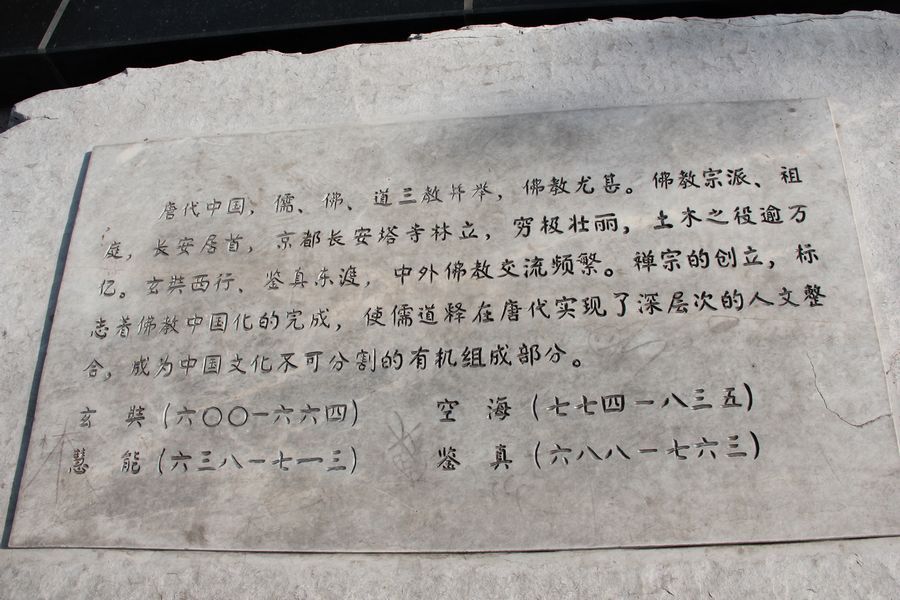 唐代中国，儒、佛、道三教并举，佛教尤甚。佛教宗派、祖
庭，长安居首，京都长安塔寺林立，穷极壮丽，土木之役逾万
亿。玄奘西行、鉴真东渡，中外佛教交流频繁。禅宗的创立，标
志着佛教中国化的完成，使儒道释在唐代实现了深层次的人文整
合，成为中国文化不可分割的有机组成部分。
玄 奘（六〇〇一六六四） 空 海（七七四一八三五）
慧 能（六三八一七一三） 鉴 真（六八八一七六三）